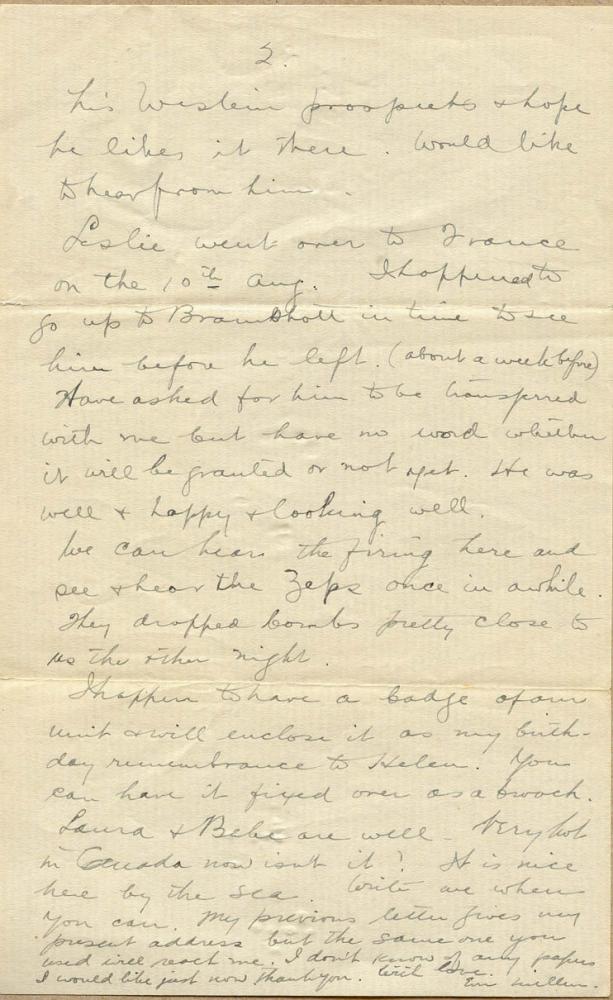 2.
his Western prospects & hope
he likes it there. Would like
to hear from him.
Leslie went over to France
on the 10th Aug. I happened to
go up to Bramshott in time to see
him before he left. (about a week before)
Have asked for him to be transferred
with me but have no word whether
it will be granted or not yet. He was
well & happy & looking well.
We can hear the firing here and
see & hear the Zeps once in awhile.
They dropped bombs pretty close to
us the other night.
I happen to have a badge of our
unit & will enclose it as my birth-
day remembrance to Helen. You
can have it fixed over as a brooch.
Laura & Bebe are well. Very hot
in Canada now isn't it? It is nice
here by the sea. Write me when
you can. My previous letter gives my
present address but the same one you
used will reach me. I don't know of any papers
I would like just now thank you. With love.